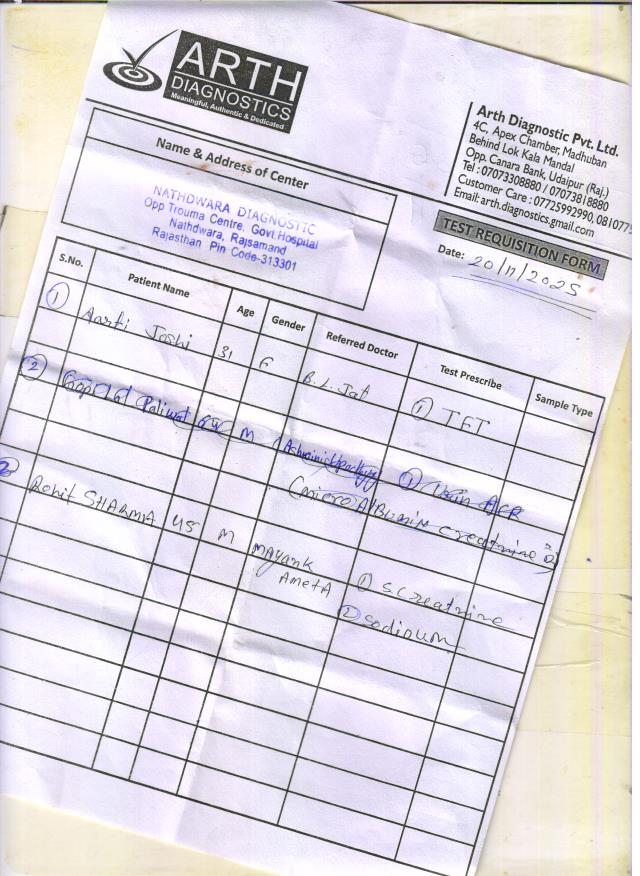 ARTH
DIAGNOSTICS
Meaningful, Authentic & Dedicated
Arth Diagnostic Pvt. Ltd.
4C, Apex Chamber, Madhuban
Behind Lok Kala Mandal
Opp. Canara Bank, Udaipur (Raj.)
Tel : 07073308880 / 07073818880
Customer Care : 07725992990, 081077
Email: arth.diagnostics.gmail.com
Name & Address of Center
NATHDWARA DIAGNOSTIC
Opp Trouma Centre, Govt.Hospital
Nathdwara, Rajsamand
Rajasthan Pin Code-313301
TEST REQUISITION FORM
Date: 20/11/2025
S.No. Patient Name Age Gender Referred Doctor Test Prescribe Sample Type
1 Aarti Joshi 31 F B.L. Jat 1 TFT
2 Paliwal M 1 ACR
(micro AlBumin creatnine
3 Rohit SHARMA 45 M MAyank 1 S. creatnine
AmetA 2 Sodium